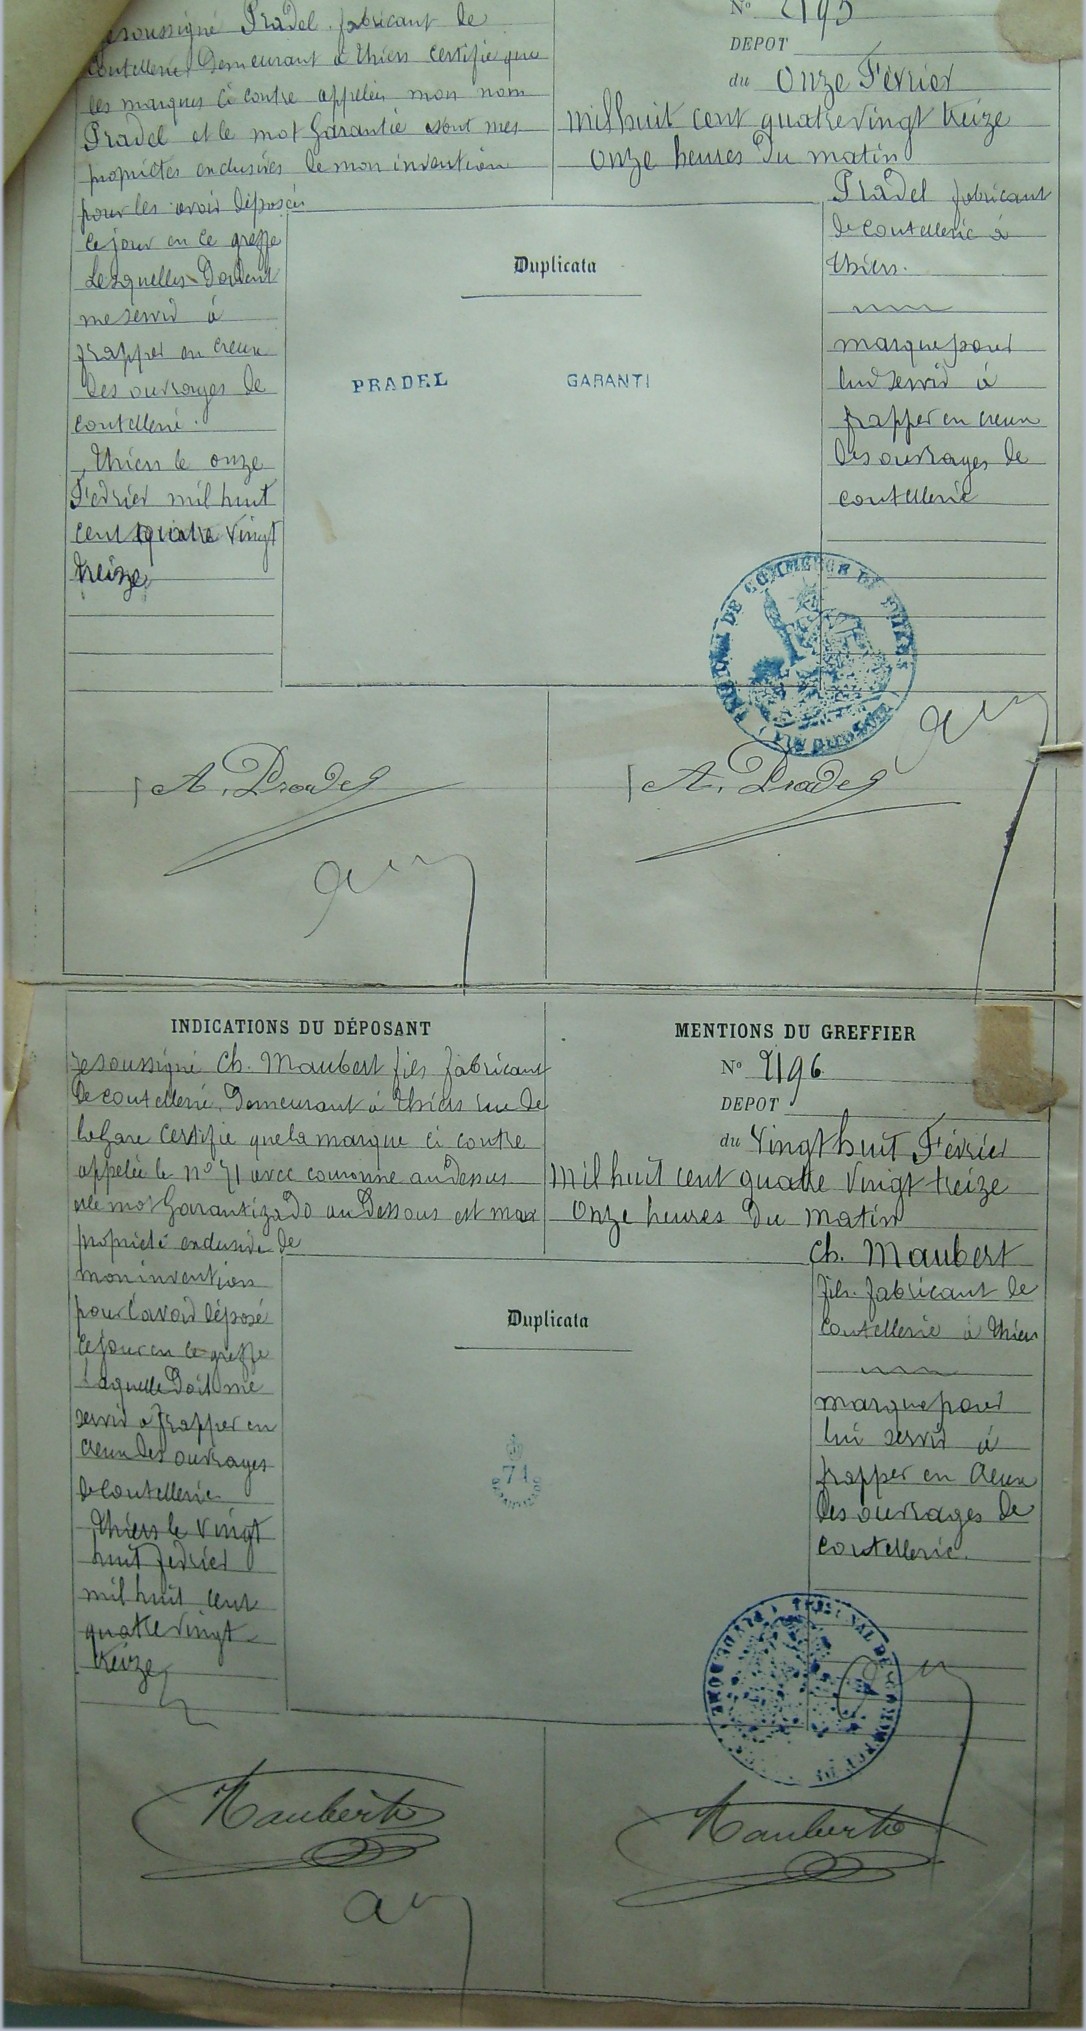 Je soussigné Pradel fabricant de
coutellerie Demeurant à Thiers certifie que
les marques ci contre appelées mon nom
Pradel et le mot Garantie sont mes
propriétés exclusives de mon invention
pour les avoir déposées
ce jour en ce greffe
Lesquelles Doivent
me servir à
frapper en creux
des ouvrages de
coutellerie.
Thiers le onze
Février mil huit
cent quatre vingt
treize
N° 2195
DEPOT
du Onze Février
mil huit cent quatre vingt treize
onze heures Du matin
Pradel fabricant
de coutellerie à
Thiers.
marque pour
lui servir à
frapper en creux
des ouvrages de
coutellerie
Duplicata
PRADEL GARANTI
TRIBUNAL DE COMMERCE DE THIERS
(PUY DE DOME)
A. Pradel
A. Pradel
INDICATIONS DU DÉPOSANT
Je soussigné Ch. Maubert fils fabricant
de coutellerie, Demeurant à Thiers rue de
la Gare certifie que la marque ci contre
appelée le n° 71 avec couronne au dessus
et le mot Garantizado au Dessous est ma
propriété exclusive de
mon invention
pour l'avoir déposé
ce jour en ce greffe
Laquelle Doit me
servir à frapper en
creux des ouvrages
de coutellerie
Thiers le vingt
huit février
mil huit cent
quatre vingt
treize
MENTIONS DU GREFFIER
N° 2196
DEPOT
du Vingt huit Février
mil huit cent quatre vingt treize
Onze heures Du matin
Ch. Maubert
fils fabricant de
coutellerie à Thiers
marque pour
lui servir à
frapper en creux
des ouvrages de
coutellerie.
Duplicata
71
GARANTIZADO
TRIBUNAL DE COMMERCE DE
PUY DE DOME
Maubert
Maubert